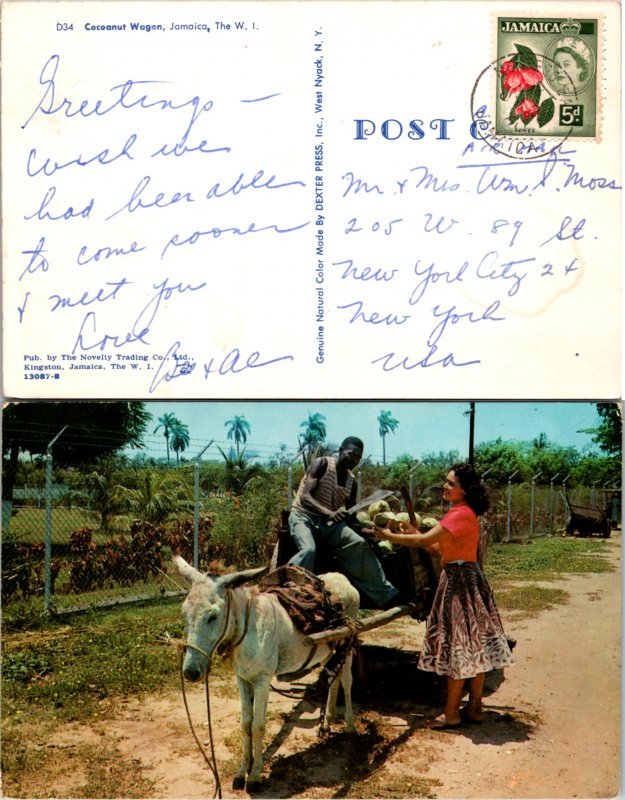 D34 Cocoanut Wagon, Jamaica, The W. I.
Greetings —
Wish we
had been able
to come sooner
& meet you
Love
Bee & Al
Pub. by The Novelty Trading Co., Ltd.,
Kingston, Jamaica, The W. I.
13087-B
Genuine Natural Color Made By DEXTER PRESS, Inc., West Nyack, N. Y.
JAMAICA
5d.
POST C
AIR MAIL
Mr & Mrs. Wm. S. Moss
205 W. 89 St.
New York City 24
New York
USA